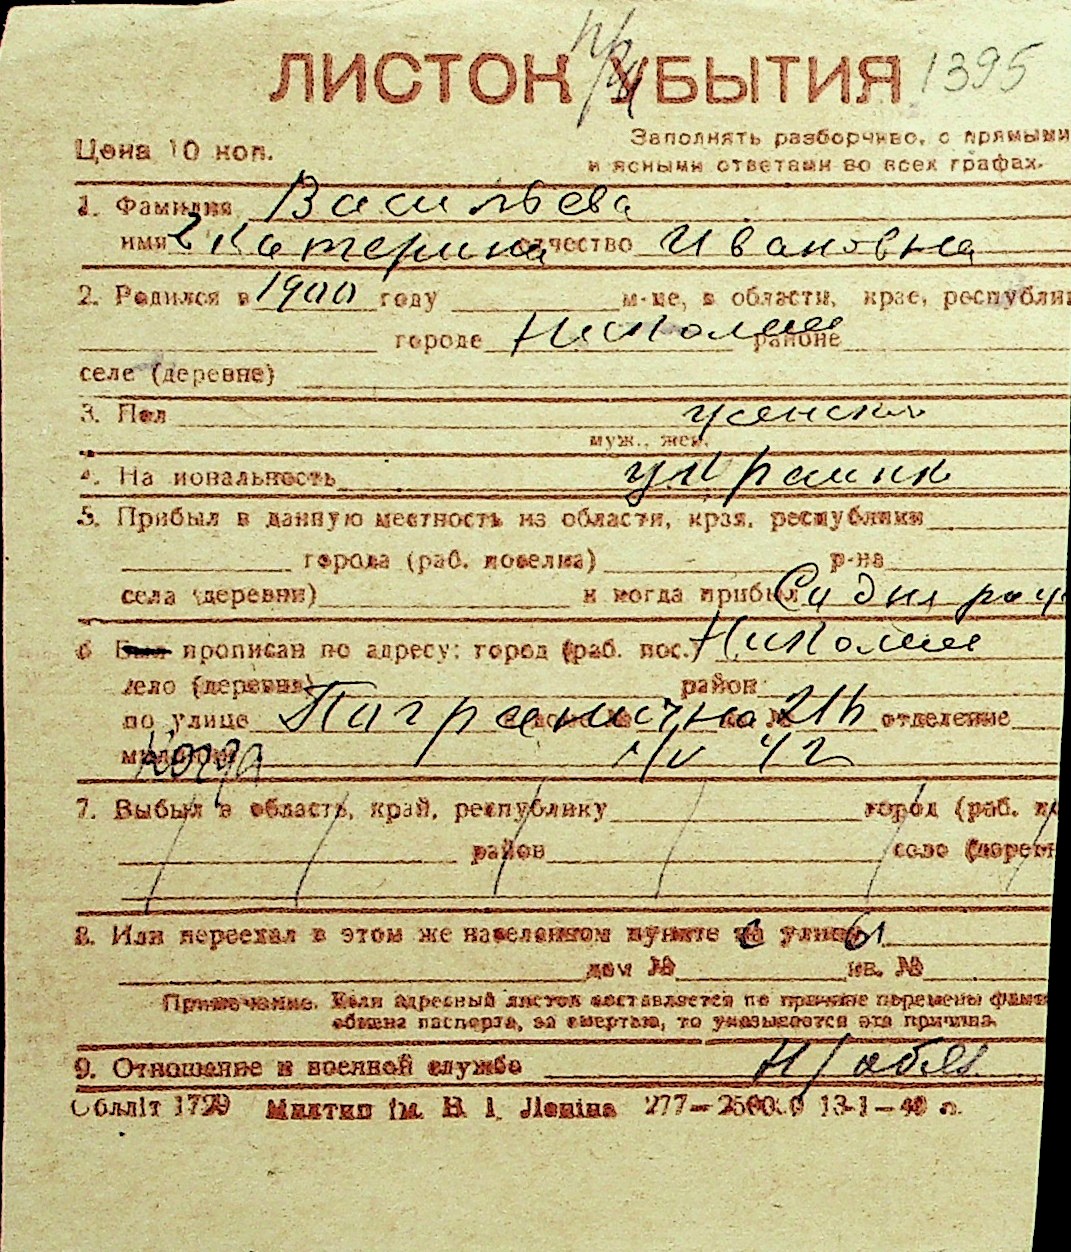 ЛИСТОК УБЫТИЯ 1395
Цена 10 коп.
Заполнять разборчиво, с прямыми
и ясными ответами во всех графах.
1. Фамилия Васильева
имя Екатерина отчество Ивановна
2. Родился в 1900 году м-це, в области, крае, республи
городе Николаев районе
селе (деревне)
3. Пол женск
муж., жен.
4. Национальность украинк
5. Прибыл в данную местность из области, края, республики
города (раб. поселка) р-на
села (деревни) и когда прибыл Со дня рож
6 Был прописан по адресу: город (раб. пос.) Николаев
село (деревня) район
по улице Пагранична 21 отделение
милиции Когда 42
7. Выбыл в область, край, республику город (раб. п
район село (дерев
8. Или переехал в этом же населенном пункте на улицу
дом № кв. №
Примечание. Если адресный листок составляется по причине перемены фами
обмена паспорта, за смертью, то указывается эта причина.
9. Отношение к военной службе н/обяз
Облліт 1729 Миктип ім. В. І. Леніна 277— 13-1—40 л.